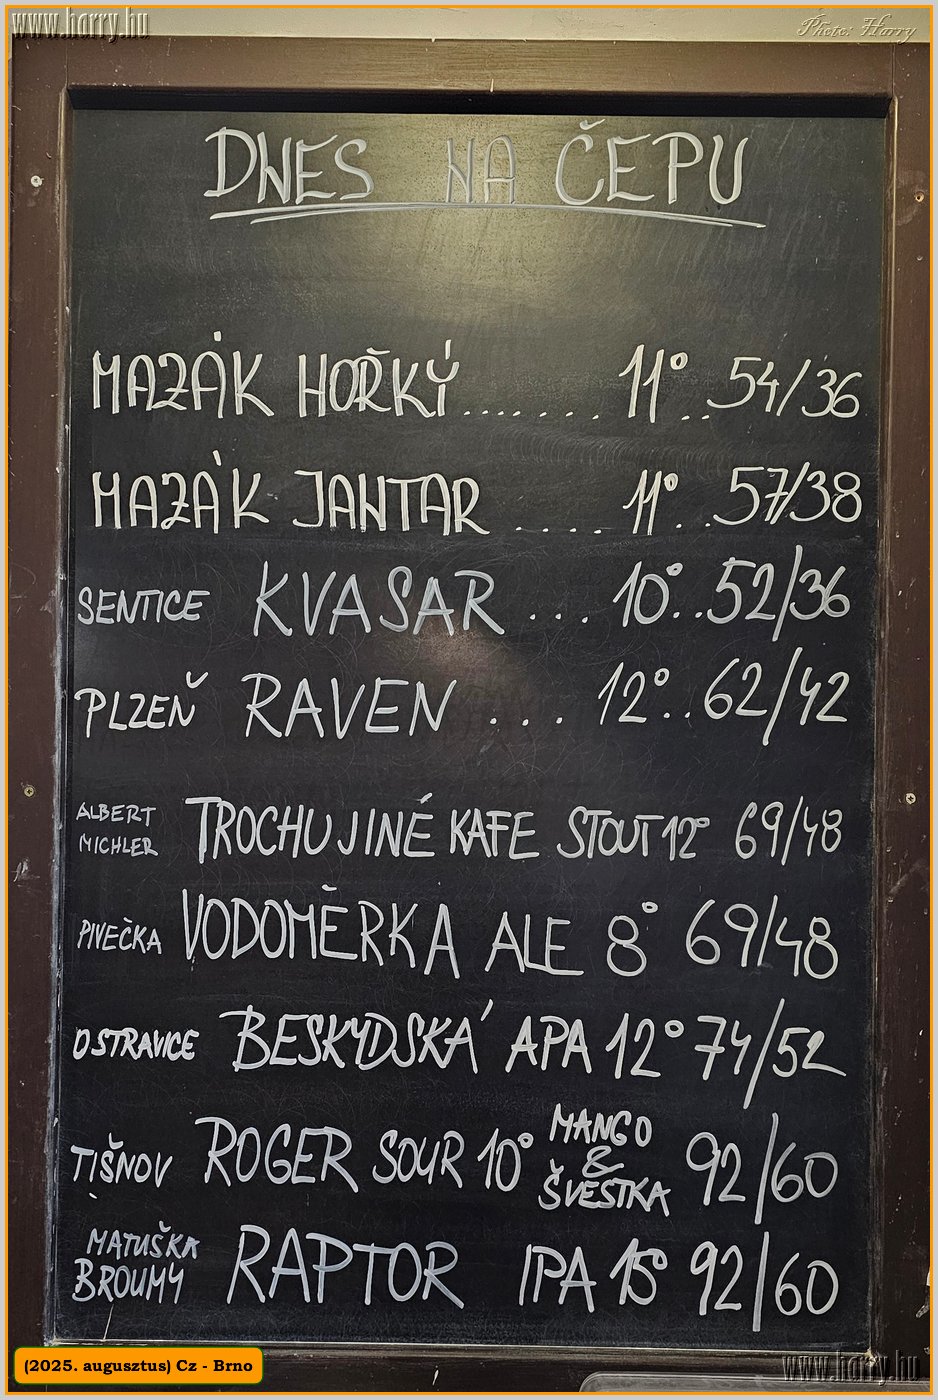 www.harry.hu
Photo: Harry
DNES NA ČEPU
MAZÁK HOŘKÝ....... 11°.. 54/36
MAZÁK JANTAR .... 11°.. 57/38
SENTICE KVASAR ... 10°.. 52/36
PLZEŇ RAVEN .... 12°.. 62/42
ALBERT MICHLER TROCHU JINÉ KAFE STOUT 12° 69/48
PIVEČKA VODOMĚRKA ALE 8° 69/48
OSTRAVICE BESKYDSKÁ APA 12° 74/52
TIŠNOV ROGER SOUR 10° MANGO & ŠVESTKA 92/60
MATUŠKA BROUMY RAPTOR IPA 15° 92/60
(2025. augusztus) Cz - Brno
www.harry.hu